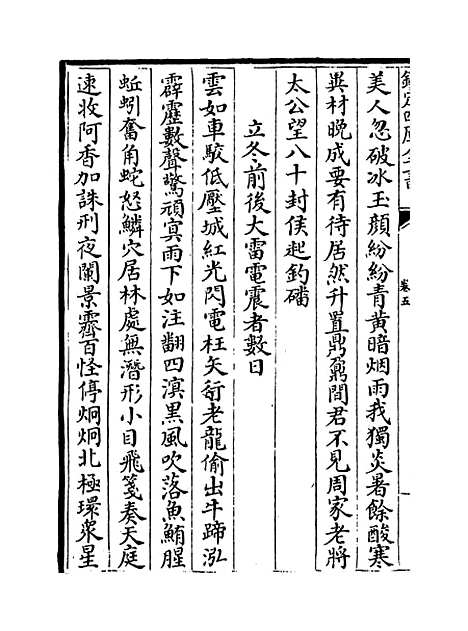 欽定四庫全書
卷五
美人忽破冰玉顔紛紛青黄暗烟雨我獨炎暑餘酸寒
異材晚成要有待居然升置鼎鼐間君不見周家老將
太公望八十封侯起釣磻
立冬前後大雷電震者數日
雲如車駮低壓城紅光閃電枉矢衡老龍偷出牛蹄泓
霹靂數聲驚頑冥雨下如注翻四溟黒風吹落魚鮪腥
蚯蚓奮角蛇怒鱗穴居林處無潛形小目飛箋奏天庭
速收阿香加誅刑夜闌景霽百怪停炯炯北極環衆星